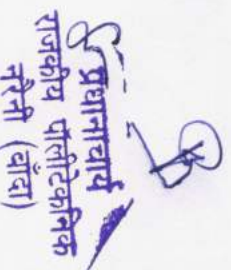 प्रधानाचार्य
राजकीय पॉलीटेकनिक
नरैनी (बाँदा)